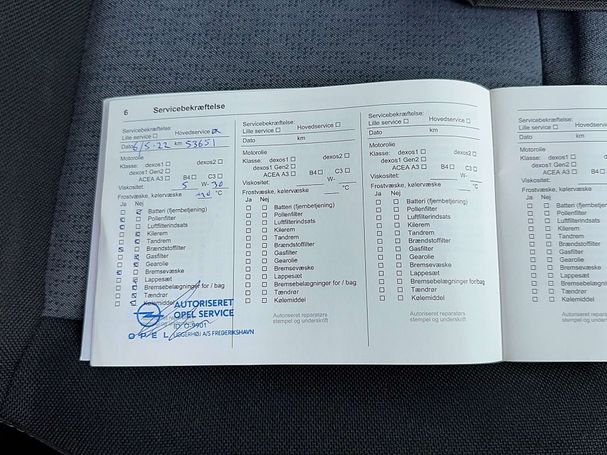 6 Servicebekræftelse
Servicebekræftelse:
Lille service Hovedservice
Dato 6/5-22 km 53651
Motorolie
Klasse: dexos1 dexos2
dexos1 Gen2
ACEA A3 B4 C3
Viskositet: 5 W- 30
Frostvæske, kølervæske -30 °C
Ja Nej
Batteri (fjernbetjening)
Pollenfilter
Luftfilterindsats
Kilerem
Tandrem
Brændstoffilter
Gasfilter
Gearolie
Bremsevæske
Lappesæt
Bremsebelægninger for / bag
Tændrør
Kølemiddel
AUTORISERET
OPEL SERVICE
ID. O-9901
OPEL UGGERHØJ A/S FREDERIKSHAVN
Servicebekræftelse:
Lille service Hovedservice
Dato km
Motorolie
Klasse: dexos1 dexos2
dexos1 Gen2
ACEA A3 B4 C3
Viskositet: W-
Frostvæske, kølervæske °C
Ja Nej
Batteri (fjernbetjening)
Pollenfilter
Luftfilterindsats
Kilerem
Tandrem
Brændstoffilter
Gasfilter
Gearolie
Bremsevæske
Lappesæt
Bremsebelægninger for / bag
Tændrør
Kølemiddel
Autoriseret reparatørs
stempel og underskrift
Servicebekræftelse:
Lille service Hovedservice
Dato km
Motorolie
Klasse: dexos1 dexos2
dexos1 Gen2
ACEA A3 B4 C3
Viskositet: W-
Frostvæske, kølervæske °C
Ja Nej
Batteri (fjernbetjening)
Pollenfilter
Luftfilterindsats
Kilerem
Tandrem
Brændstoffilter
Gasfilter
Gearolie
Bremsevæske
Lappesæt
Bremsebelægninger for/bag
Tændrør
Kølemiddel
Autoriseret reparatørs
stempel og underskrift
Servicebekræftelse:
Lille service
Dato km
Motorolie
Klasse: dexos1
dexos1 Gen2
ACEA A3
Viskositet:
Frostvæske, kølervæske
Ja Nej
Batteri
Pollenfilter
Luftfilterindsats
Kilerem
Tandrem
Brændstoffilter
Gasfilter
Gearolie
Bremsevæske
Lappesæt
Tændrør
Kølemiddel